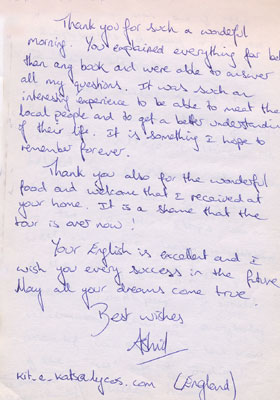 Thank you for such a wonderful
morning. You explained everything far bet
than any book and were able to answer
all my questions. It was such an
interesting experience to be able to meet the
local people and to get a better understanding
of their life. It is something I hope to
remember forever.
Thank you also for the wonderful
food and welcome that I received at
your home. It is a shame that the
tour is over now!
Your English is excellent and I
wish you every success in the future
May all your dreams come true.
Best wishes
Astrid
(England)